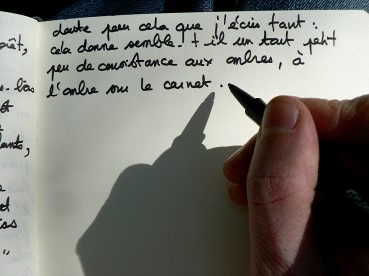 doute pour cela que j'écris tant :
cela donne semble-t-il un tout petit
peu de consistance aux ombres, à
l'ombre sur le carnet.